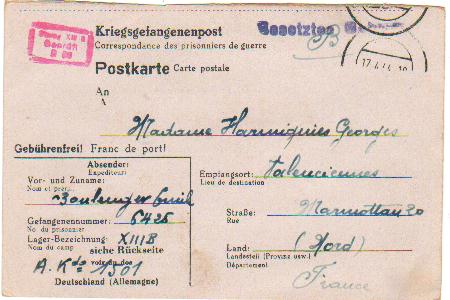 Kriegsgefangenenpost
Correspondance des prisonniers de guerre
Postkarte Carte postale
Stalag XIII B
Geprüft
Besetztes
B
17.4.4
An
A
Madame Harmignies Georges
Gebührenfrei! Franc de port!
Absender:
Expediteur:
Vor- und Zuname:
Nom et prénom
Boulenger Emile
Gefangenennummer: 6425
No. du prisonnier
Lager-Bezeichnung: XIIIB
Nom du camp
siehe Rückseite
voir au dos
A. Kdo 1501
Deutschland (Allemagne)
Empfangsort: Valenciennes
Lieu de destination
Straße: Marmottan 20
Rue
Land: (Nord)
Landesteil (Provinz usw.)
Département
France